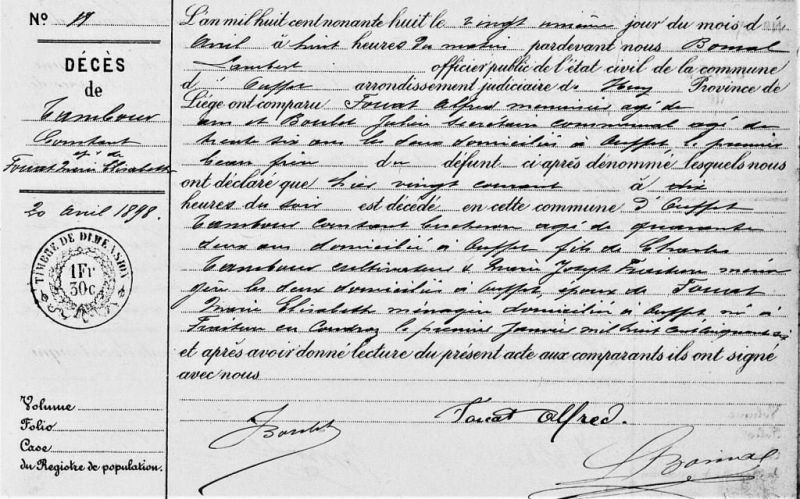 Nº 19
DÉCÈS
de
Tambour
Constant
ép. de
Fouat Marie Elisabeth
20 avril 1898.
TIMBRE DE DIMENSION
1 Fr
30 c.
Volume
Folio
Case
du Registre de population.
L'an mil huit cent nonante huit le vingt unième jour du mois d'
Avril à huit heures du matin pardevant nous Bomal
Lambert officier public de l'état civil de la commune
d' Ouffet arrondissement judiciaire d Huy Province de
Liège ont comparu Fouat Alfred menuisier agé de
ans et Boulet Julien Secrétaire communal agé de
trente six ans les deux domiciliés à Ouffet le premier
beau frère du défunt ci-après dénommé lesquels nous
ont déclaré que hier vingt courant à dix
heures du soir est décédé en cette commune d'Ouffet
Tambour Constant bucheron agé de quarante
deux ans domicilié à Ouffet fils de Charles
Tambour cultivateur & Marie Joseph ména
gère les deux domiciliés à Ouffet époux de Fouat
Marie Elisabeth ménagère domiciliée à Ouffet né à
en Condroz le premier Janvier mil huit cent cinquante six
et après avoir donné lecture du présent acte aux comparants ils ont signé
avec nous
Fouat Alfred.
JBoulet
LBomal